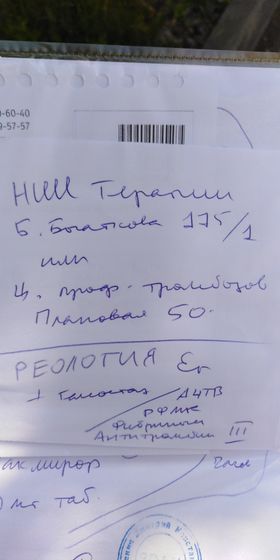 0-60-40
9-57-57
НИИ Терапии
Б. Богаткова 175/1
или
Ц. проф. тромбозов
Плановая 50.
РЕОЛОГИЯ Er
1 Гемостаз / АЧТВ
РФМК
Фибриноген
Антитромбин III
мг таб.